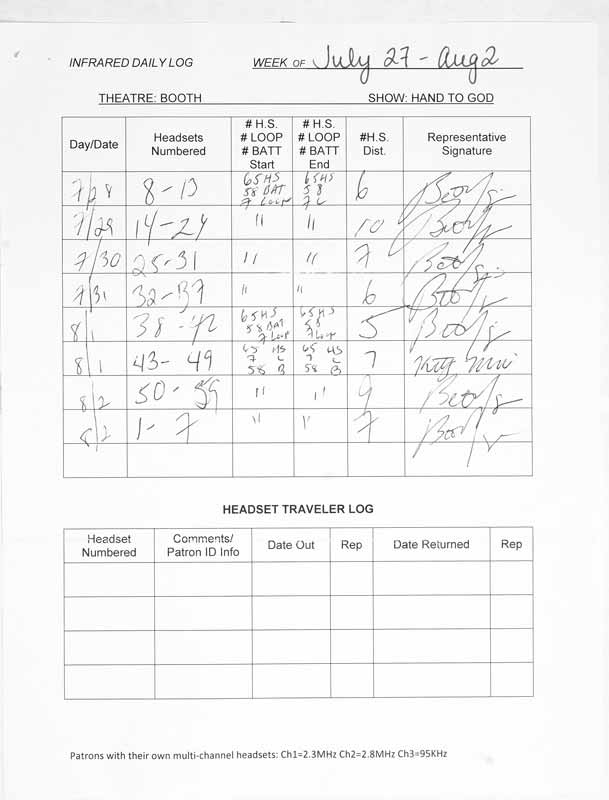 INFRARED DAILY LOG WEEK OF July 27 - Aug 2
THEATRE: BOOTH SHOW: HAND TO GOD
Day/Date Headsets Numbered # H.S. # LOOP # BATT Start # H.S. # LOOP # BATT End #H.S. Dist. Representative Signature
7/28 8-13 65 HS 58 BAT 7 Loop 65 HS 58 7 L 6
7/29 14-24 " " 10
7/30 25-31 " " 7
7/31 32-37 " " 6
8/1 38-42 65 HS 58 BAT 7 Loop 65 HS 58 7 Loop 5
8/1 43-49 65 HS 7 L 58 B 65 HS 7 L 58 B 7
8/2 50-59 " " 9
8/2 1-7 " " 7
HEADSET TRAVELER LOG
Headset Numbered Comments/ Patron ID Info Date Out Rep Date Returned Rep
Patrons with their own multi-channel headsets: Ch1=2.3MHz Ch2=2.8MHz Ch3=95KHz